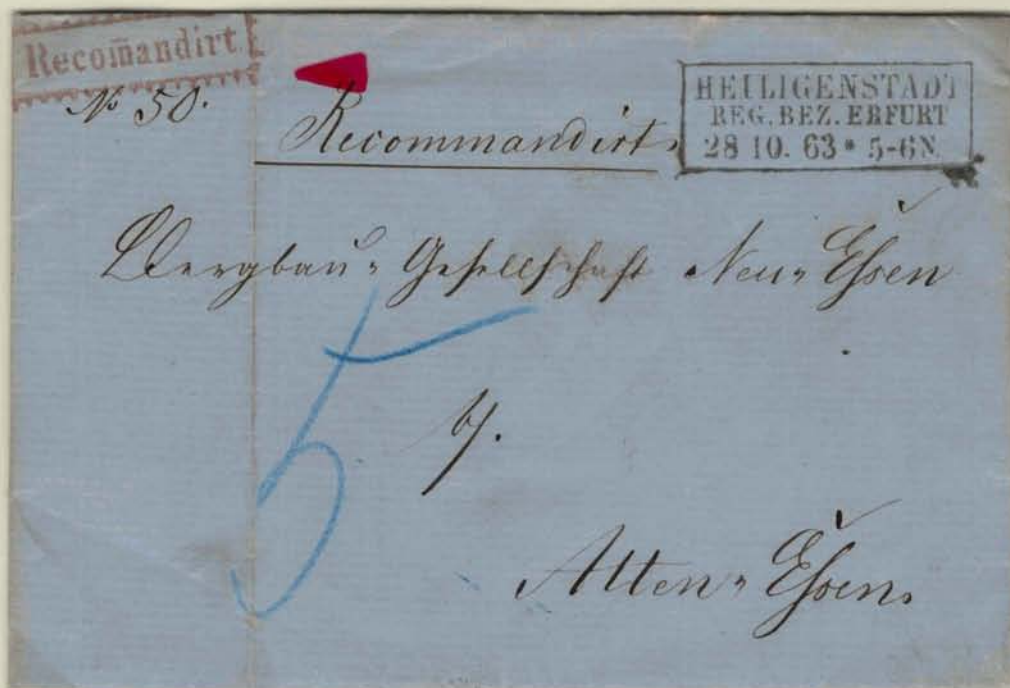 Recom̄andirt
No 50.
Recommandirt.
HEILIGENSTADT
REG. BEZ. ERFURT
28 10. 63 * 5-6N.
Bergbau-Gesellschaft Neu-Essen
5
Alten-Essen.